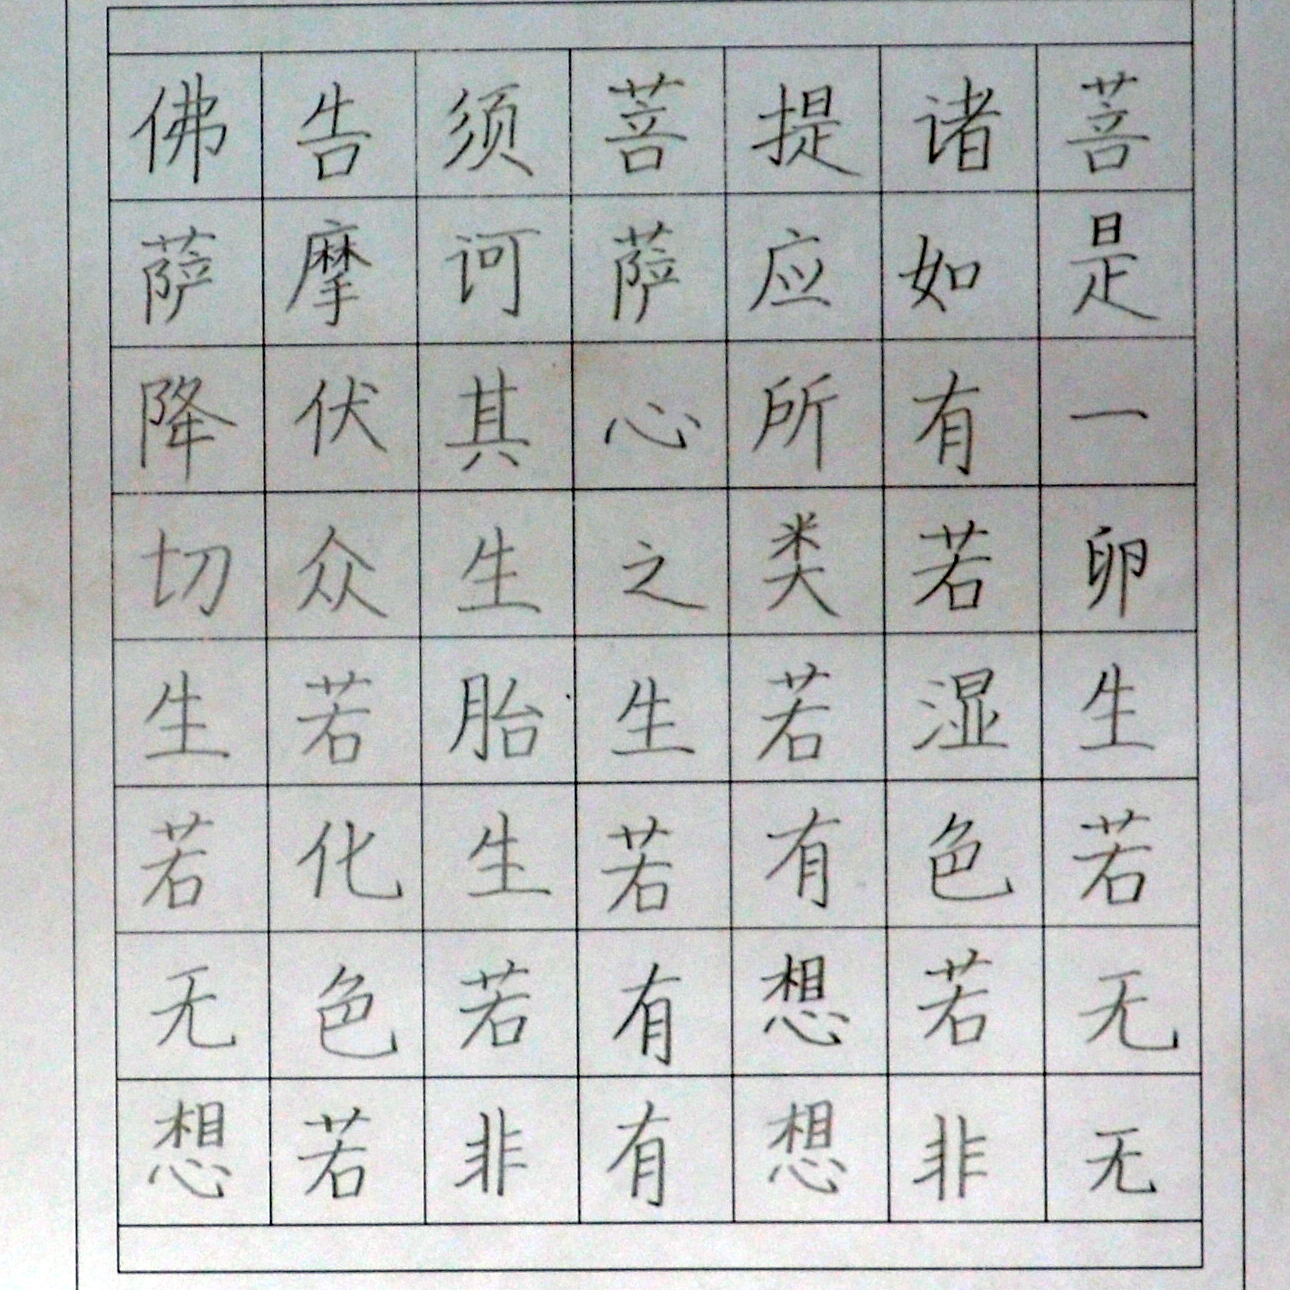 佛告须菩提诸菩
萨摩诃萨应如是
降伏其心所有一
切众生之类若卵
生若胎生若湿生
若化生若有色若
无色若有想若无
想若非有想非无